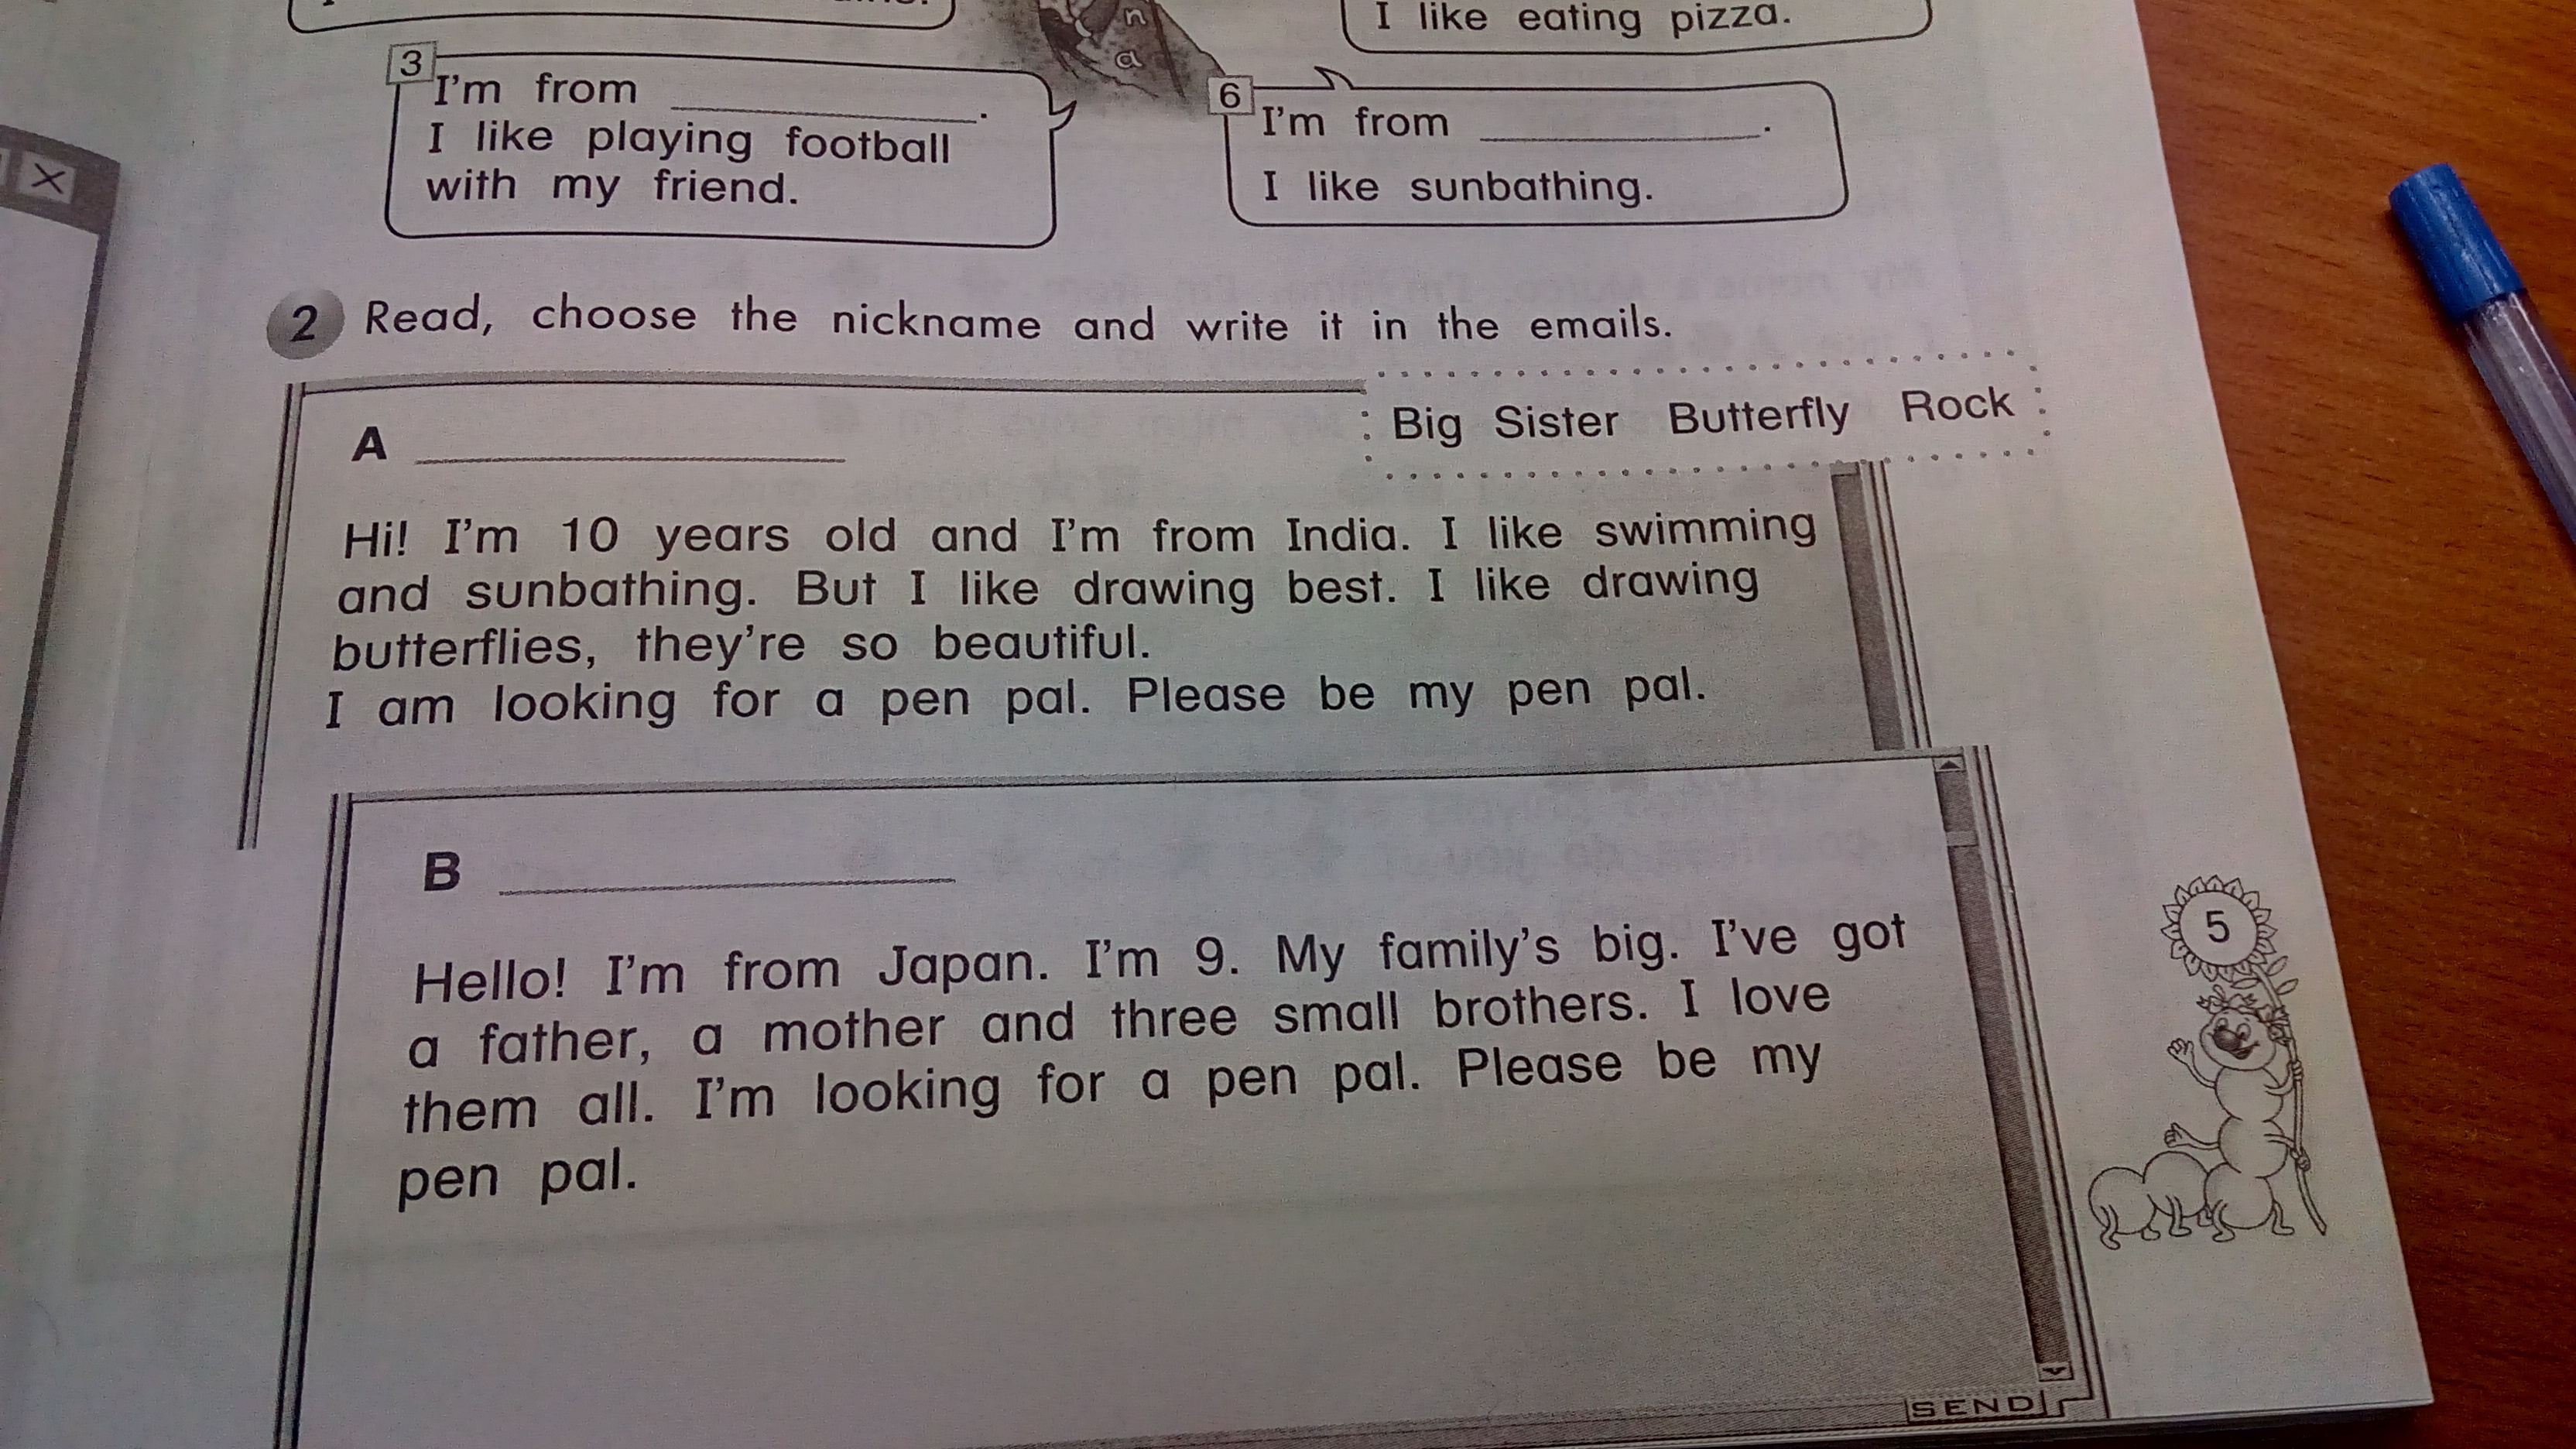 I like eating pizza.
n
a
3
I'm from ____________.
I like playing football
with my friend.
6
I'm from ____________.
I like sunbathing.
2 Read, choose the nickname and write it in the emails.
Big Sister Butterfly Rock
A ____________
Hi! I'm 10 years old and I'm from India. I like swimming
and sunbathing. But I like drawing best. I like drawing
butterflies, they're so beautiful.
I am looking for a pen pal. Please be my pen pal.
B ____________
Hello! I'm from Japan. I'm 9. My family's big. I've got
a father, a mother and three small brothers. I love
them all. I'm looking for a pen pal. Please be my
pen pal.
5
SEND